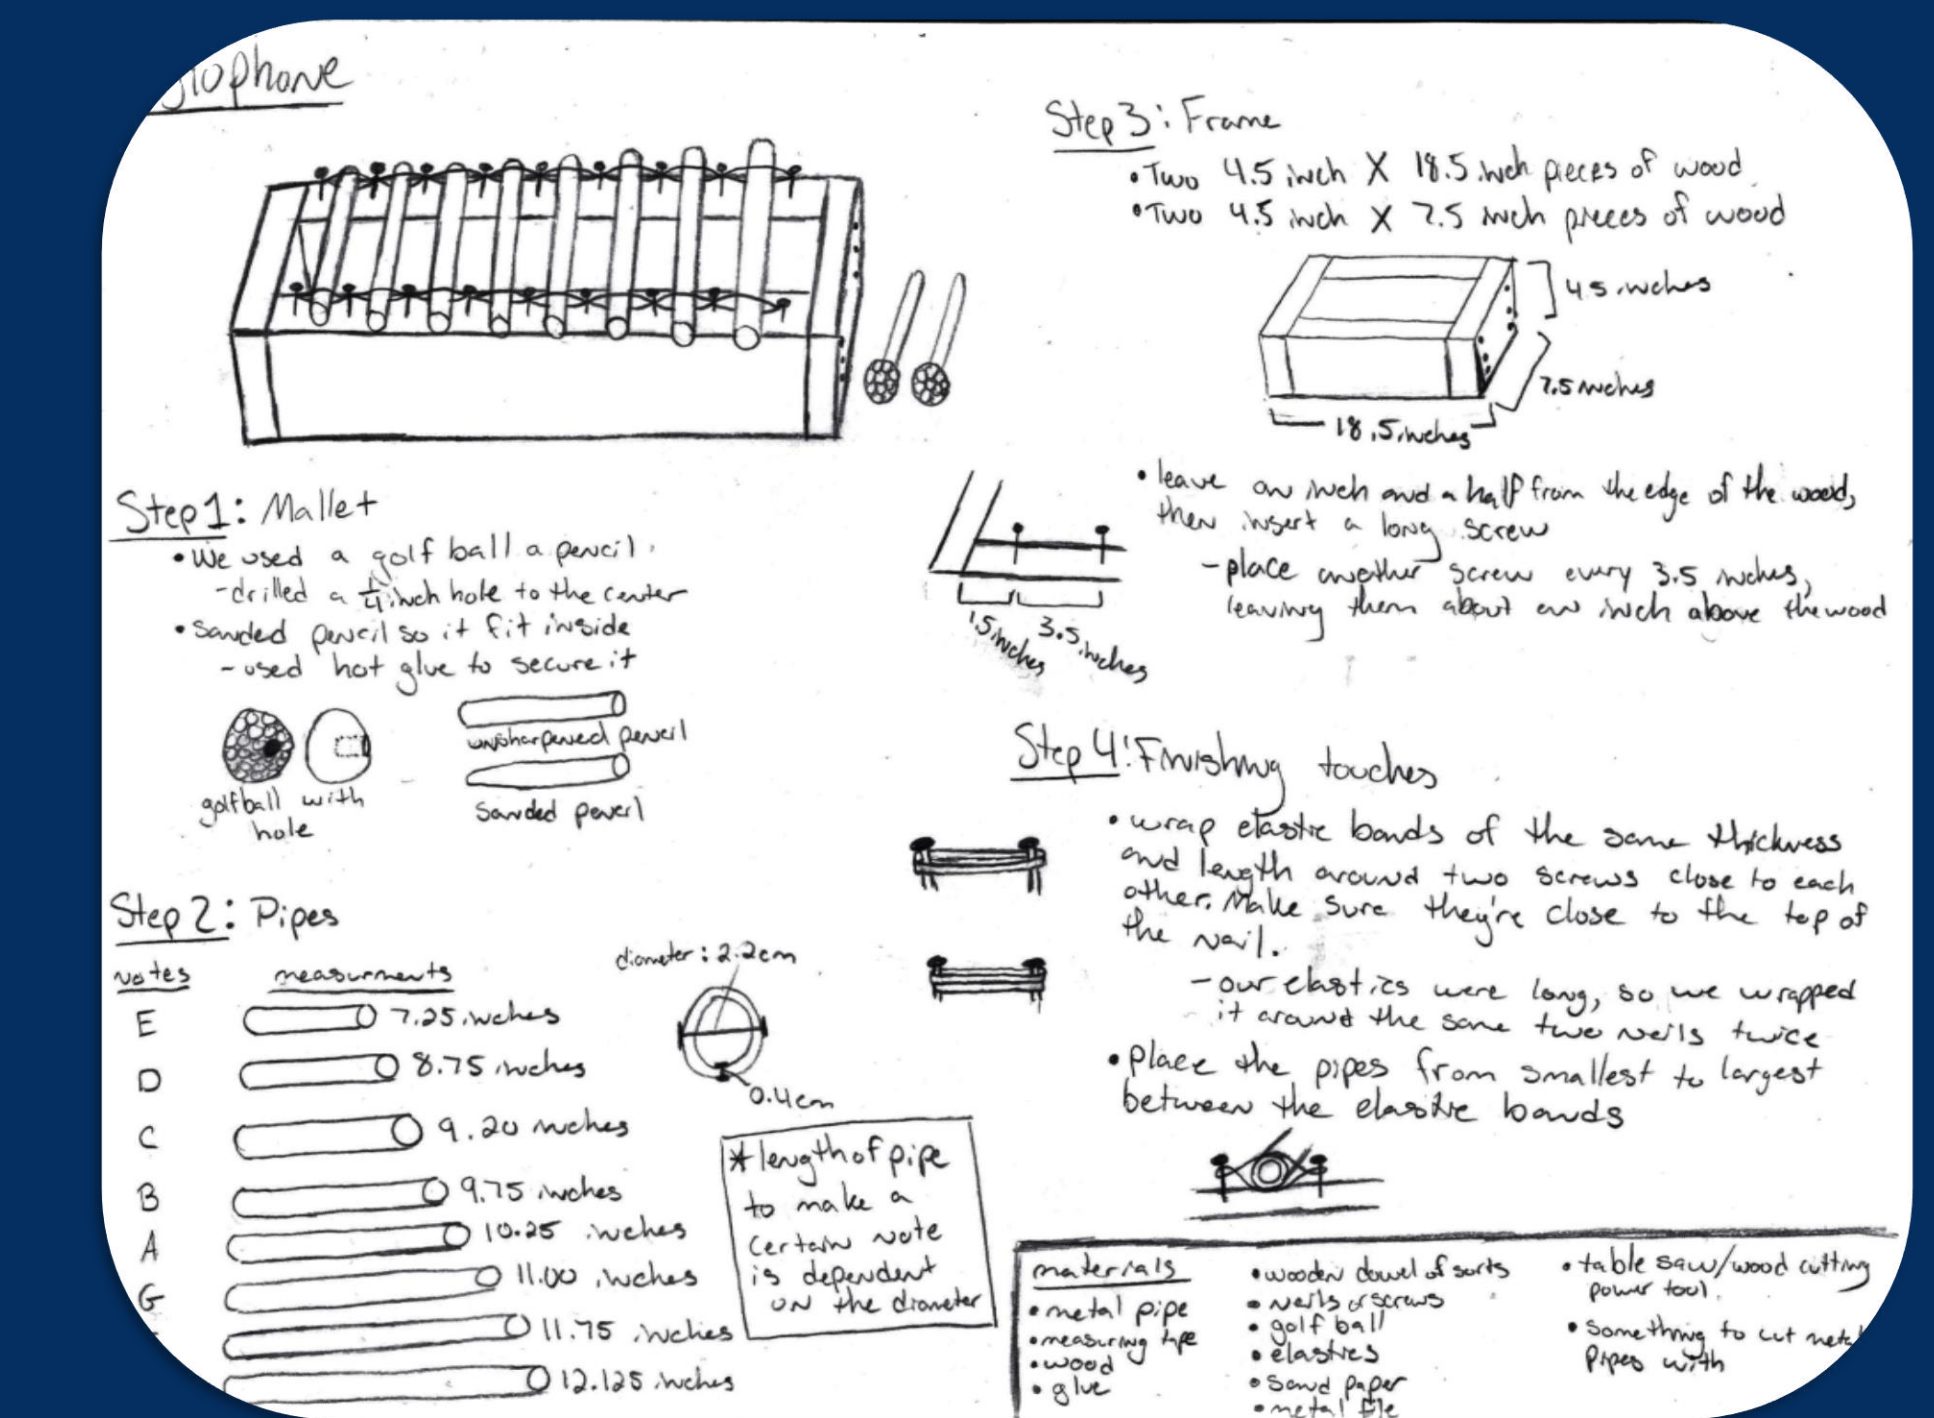 ylophone
Step 1: Mallet
• We used a golf ball a pencil.
- drilled a 1/4 inch hole to the center
• Sanded pencil so it fit inside
- used hot glue to secure it
golfball with
hole
unsharpened pencil
Sanded pencil
Step 2: Pipes
notes measurments
E 7.25 inches
D 8.75 inches
C 9.20 inches
B 9.75 inches
A 10.25 inches
G 11.00 inches
11.75 inches
12.125 inches
diameter: 2.2cm
0.4cm
* length of pipe
to make a
certain note
is dependent
on the diameter
Step 3: Frame
• Two 4.5 inch X 18.5 inch pieces of wood
• Two 4.5 inch X 7.5 inch pieces of wood
4.5 inches
7.5 inches
18.5 inches
• leave an inch and a half from the edge of the wood,
then insert a long screw
- place another screw every 3.5 inches,
leaving them about an inch above the wood
1.5 inches
3.5 inches
Step 4: Finishing touches
• wrap elastic bands of the same thickness
and length around two screws close to each
other. Make sure they're close to the top of
the nail.
- our elastics were long, so we wrapped
it around the same two nails twice
• place the pipes from smallest to largest
between the elastic bands
materials
• metal pipe
• measuring tape
• wood
• glue
• wooden dowel of sorts
• nails or screws
• golf ball
• elastics
• sand paper
• metal file
• table saw/wood cutting
power tool.
• something to cut metal
pipes with